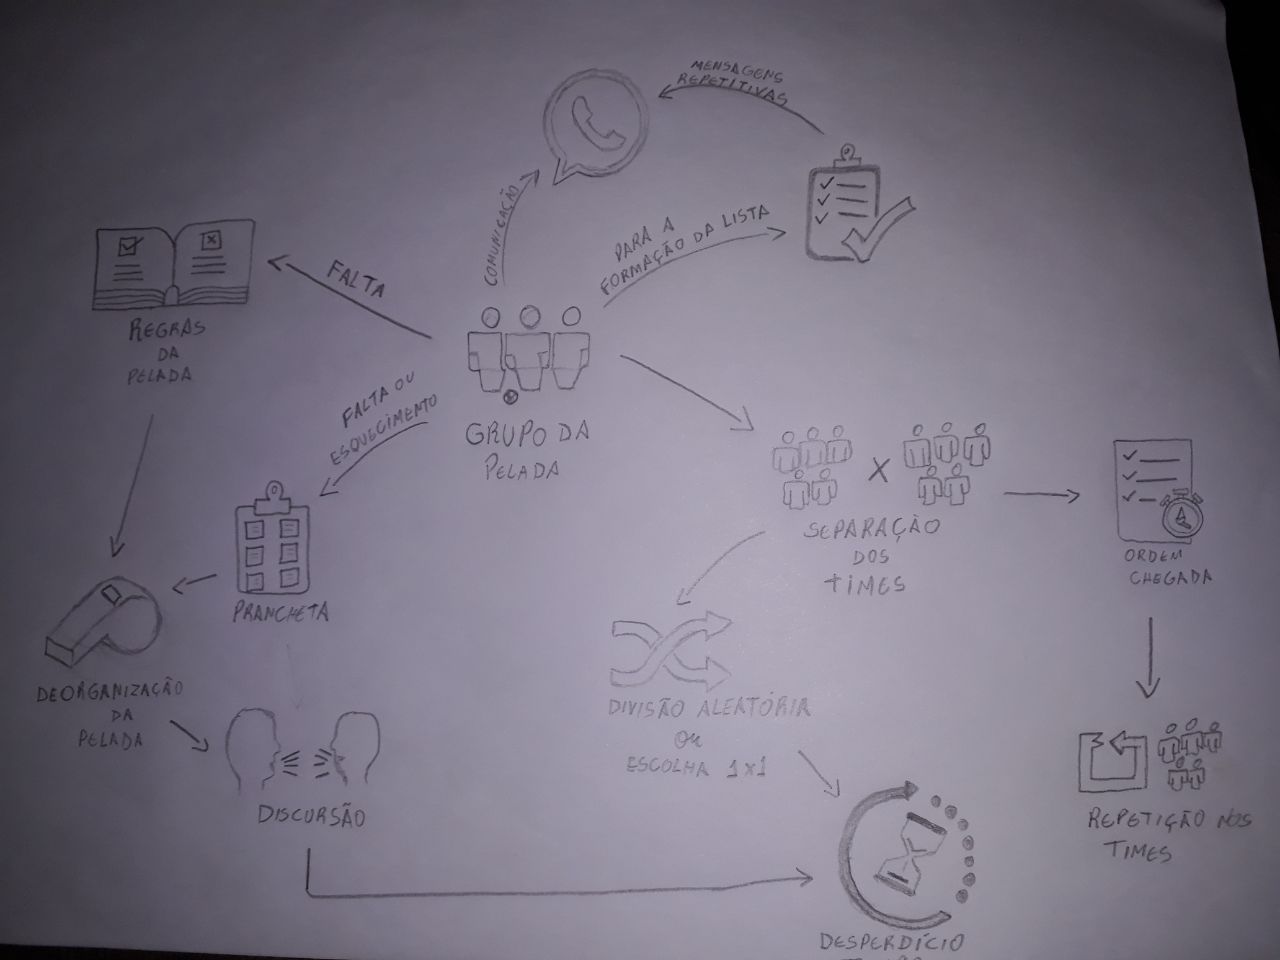 MENSAGENS
REPETITIVAS
COMUNICAÇÃO
PARA A
FORMAÇÃO DA LISTA
FALTA
REGRAS
DA
PELADA
FALTA OU
ESQUECIMENTO
GRUPO DA
PELADA
X
SEPARAÇÃO
DOS
TIMES
ORDEM
CHEGADA
PRANCHETA
DEORGANIZAÇÃO
DA
PELADA
DIVISÃO ALEATÓRIA
OU
ESCOLHA 1x1
DISCURSÃO
REPETIÇÃO NOS
TIMES
DESPERDÍCIO